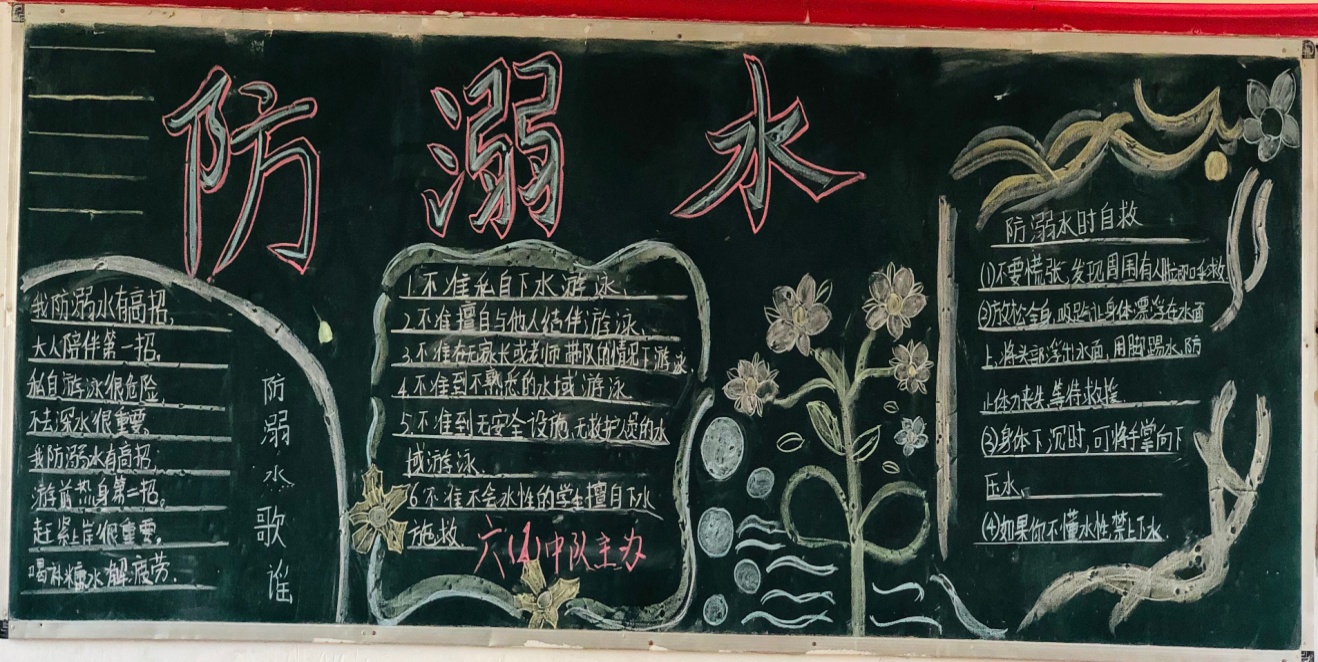 防溺水
我防溺水有高招,
大人陪伴第一招,
私自游泳很危险,
不去深水很重要,
我防溺水有高招,
游前热身第二招,
赶紧上岸很重要,
喝补糖水解疲劳.
防溺水歌谁
1.不准私自下水游泳、
2.不准擅自与他人结伴游泳、
3.不准在无家长或老师带队的情况下游泳
4.不准到不熟悉的水域游泳.
5.不准到无安全设施,无救护人员的水
域游泳.
6.不准不会水性的学生擅自下水
施救.
六(1)中队主办
防溺水时自救
(1)不要慌张,发现周围有人时即呼救
(2)放松全身,吸气让身体漂浮在水面
上,将头部浮出水面,用脚踢水,防
止体力丧失,等待救援.
(3)身体下沉时,可将手掌向下
压水.
(4)如果你不懂水性,禁止下水.